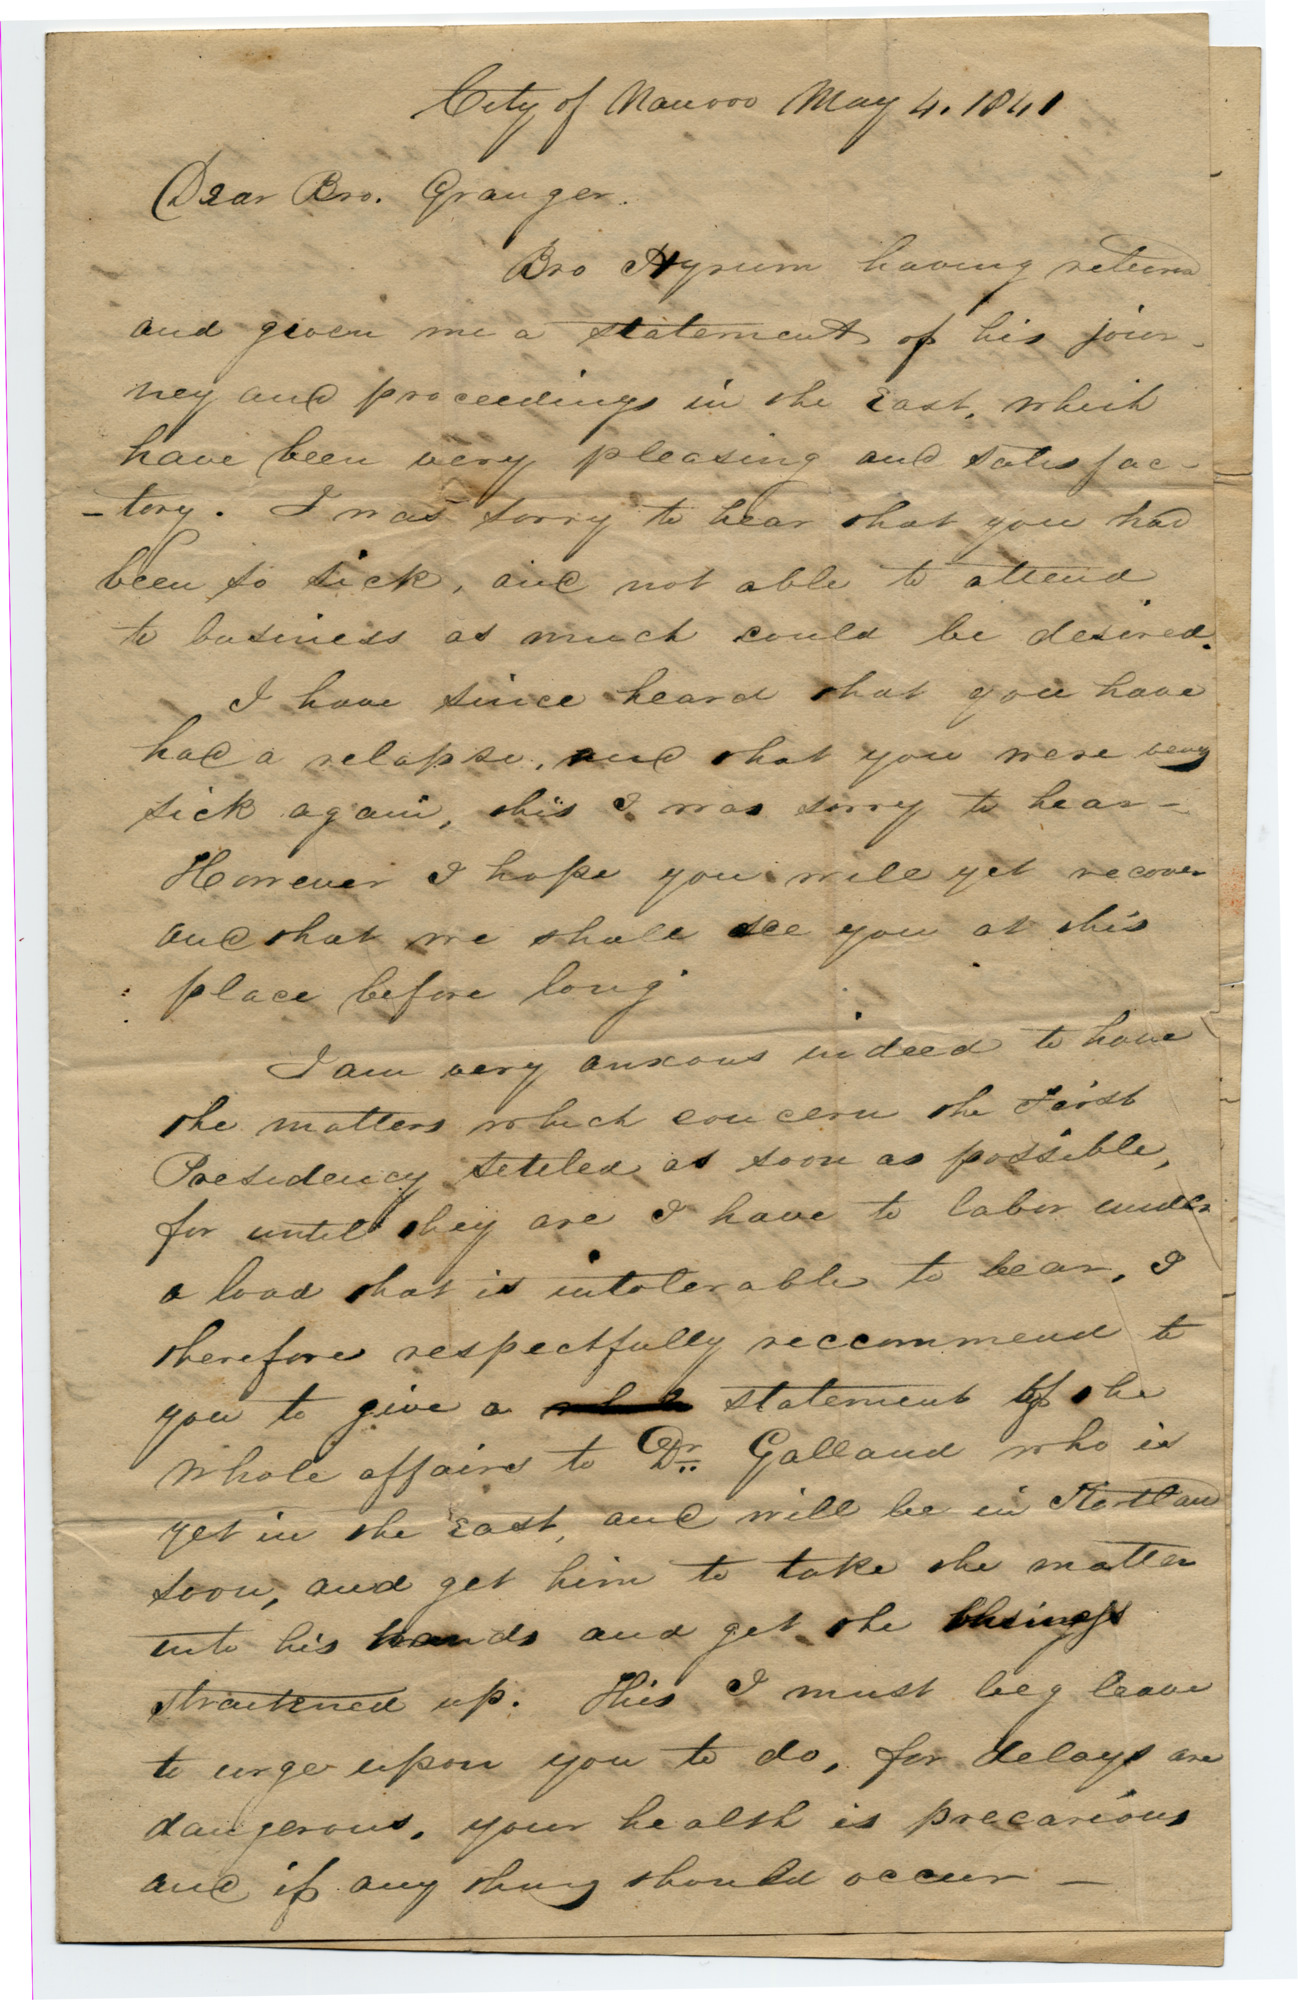 City of Nauvoo May 4. 1841
Dear Bro. Granger.
Bro Hyrum having returned
and given me a statement of his jour-
ney and proceedings in the East, which
have been very pleasing and satisfac-
-tory. I was sorry to hear that you had
been so sick, and not able to attend
to business as much could be desired.
I have since heard that you have
had a relapse, and that you were very
sick again, this I was sorry to hear—
However I hope you will yet recover
and that we shall see you at this
place before long
I am very anxous indeed to have
the matters which concern the First
Presidency setled as soon as possible,
for until they are I have to labor under
a load that is intolerable to bear, I
therefore respectfully reccommend to
you to give a statement of the
whole affairs to Dr. Galland who is
yet in the East, and will be in Kirtland
soon, and get him to take the matter
into his hands and get the business
straitened up. This I must beg leave
to urge upon you to do, for delays are
dangerous, your health is precarious
and if any thing should occur —